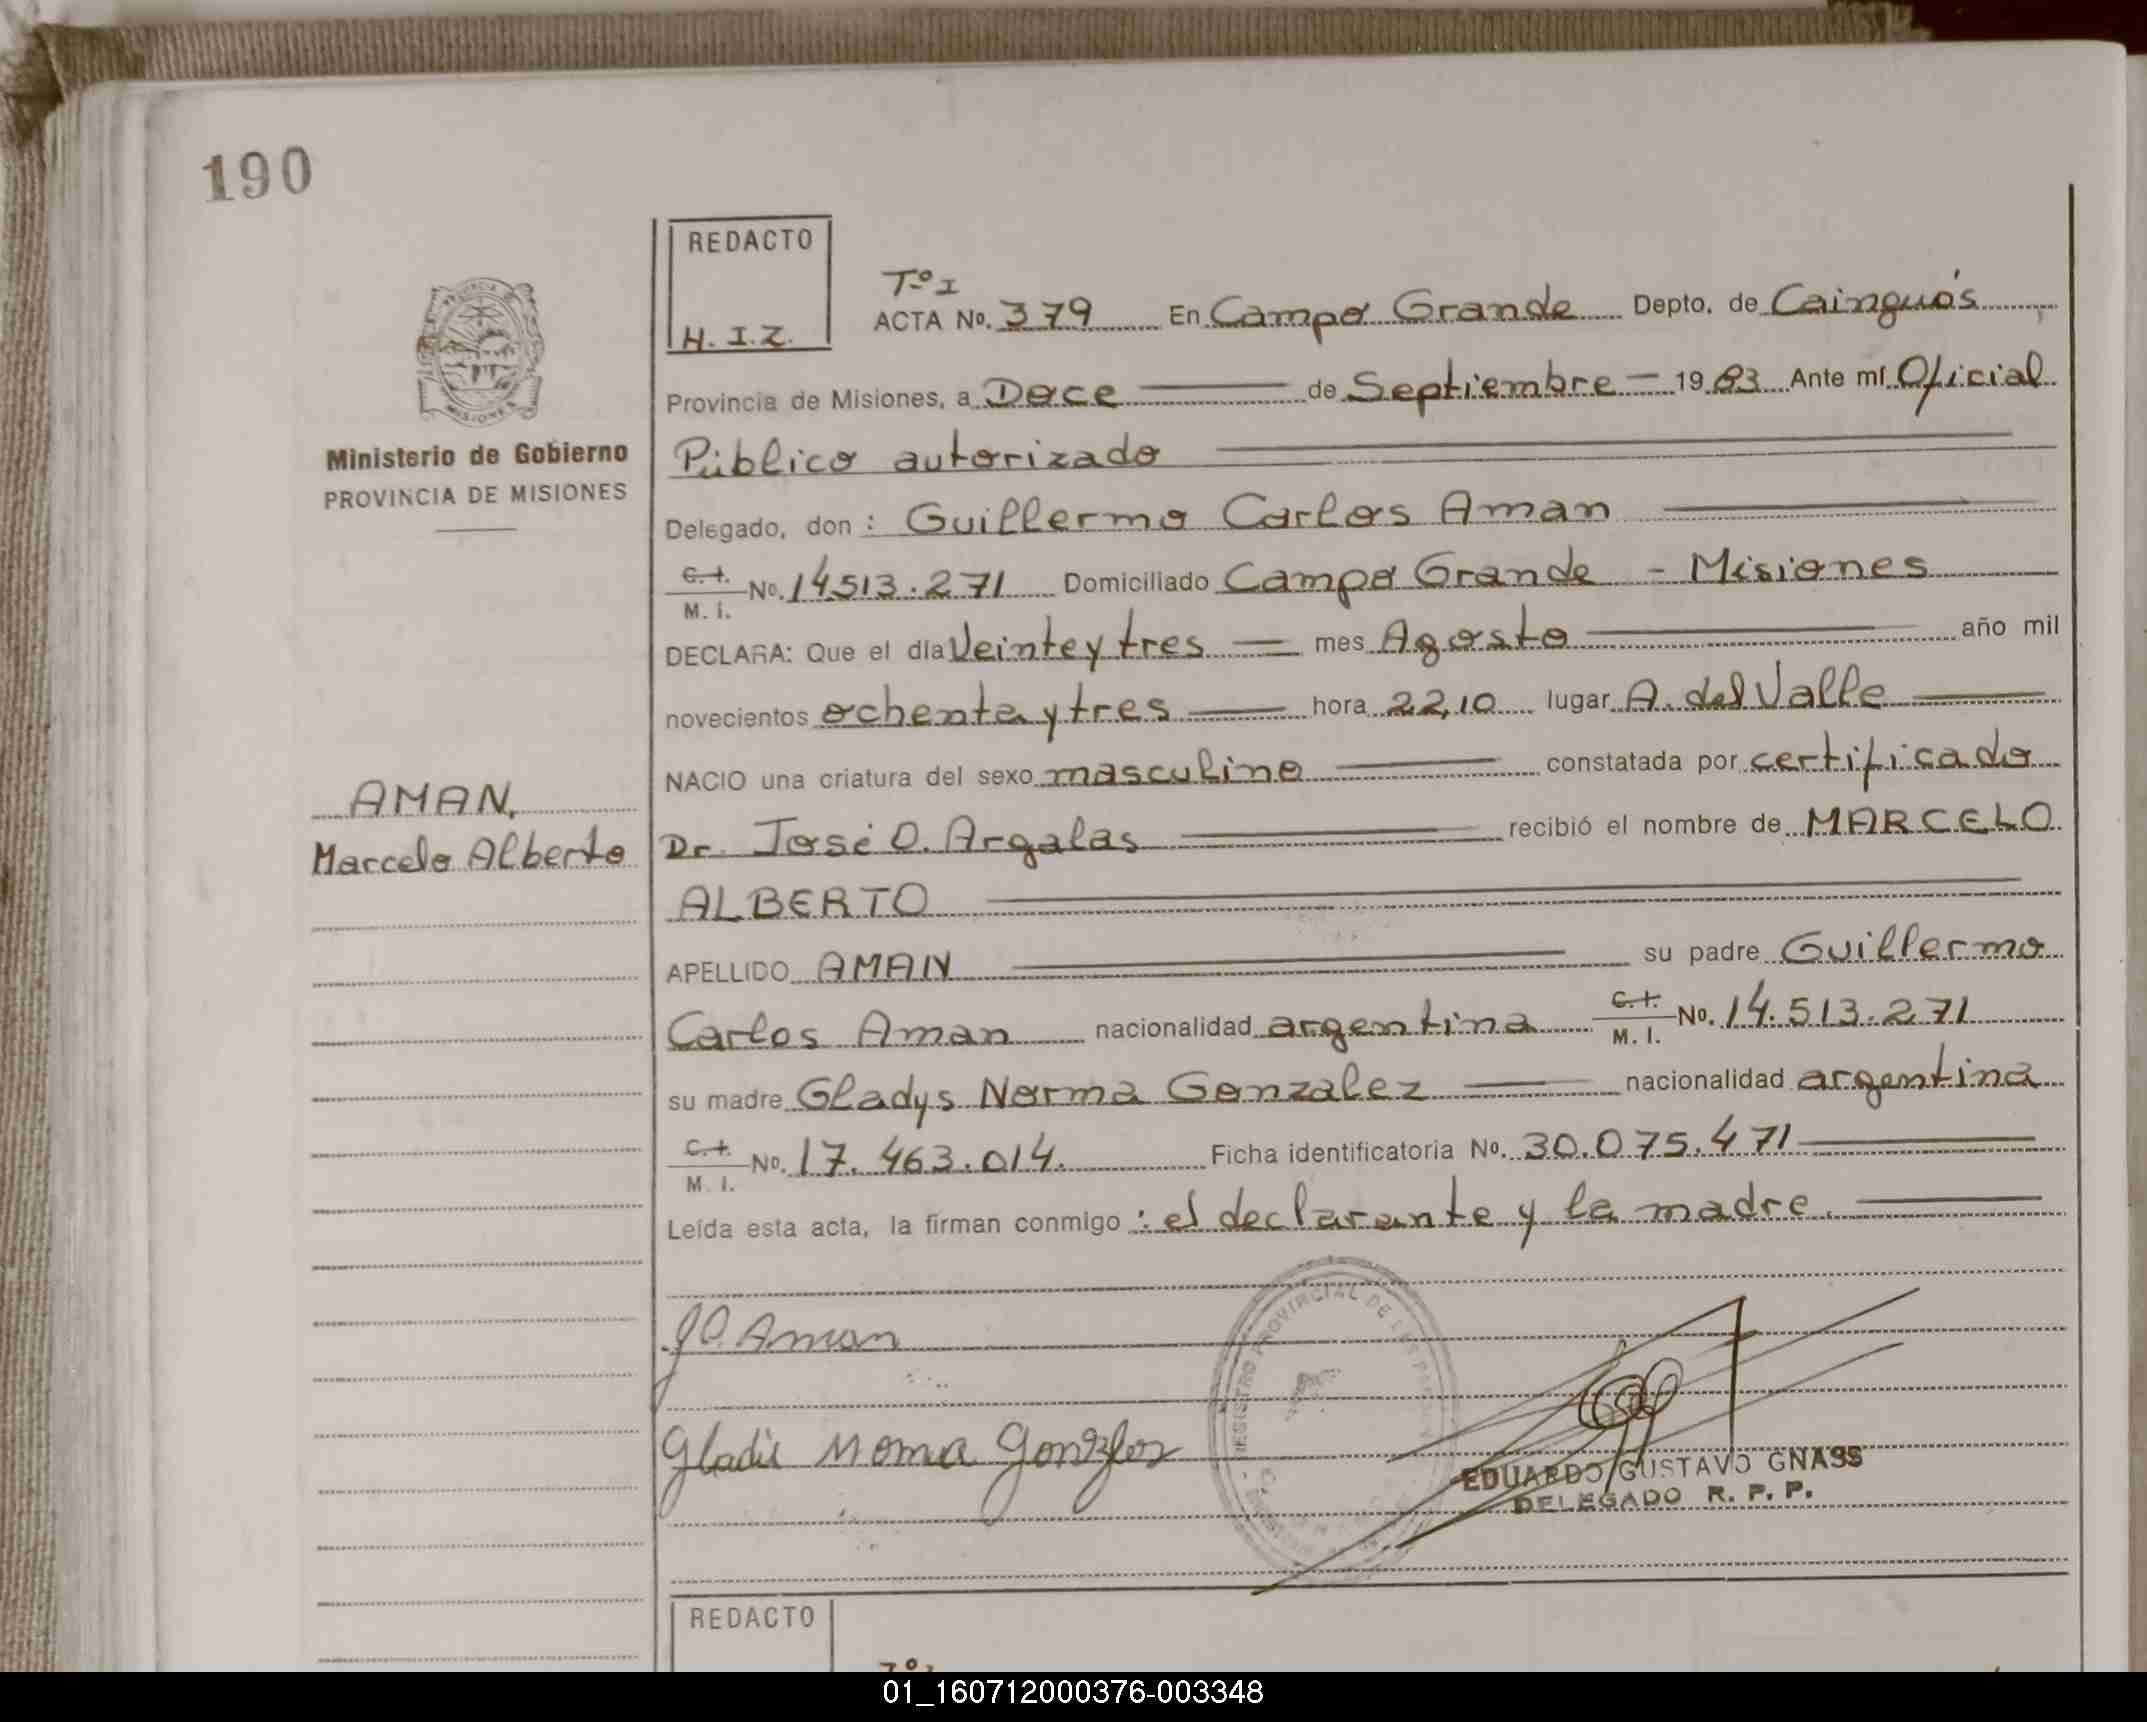 190
REDACTO
H. I. Z.
Tº I
ACTA Nº. 379 En Campo Grande Depto. de Cainguás
Provincia de Misiones, a Doce de Septiembre 1983 Ante mí Oficial
Ministerio de Gobierno
PROVINCIA DE MISIONES
Público autorizado
Delegado, don : Guillermo Carlos Aman
C.I. M. I. Nº. 14513.271 Domiciliado Campo Grande - Misiones
DECLARA: Que el día Veinte y tres mes Agosto año mil
novecientos ochenta y tres hora 22,10 lugar A. del Valle
NACIO una criatura del sexo masculino constatada por certificado
AMAN,
Marcelo Alberto
Dr. José O. Argalas recibió el nombre de MARCELO
ALBERTO
APELLIDO AMAN su padre Guillermo
Carlos Aman nacionalidad argentina C.I. M. I. Nº. 14.513.271
su madre Gladys Norma Gonzalez nacionalidad argentina
C.I. M. I. Nº. 17.463.014. Ficha identificatoria Nº. 30.075.471
Leída esta acta, la firman conmigo : el declarante y la madre.
Aman
REGISTRO PROVINCIAL DE LAS
EDUARDO GUSTAVO GNASS
DELEGADO R. P. P.
REDACTO
01_160712000376-003348